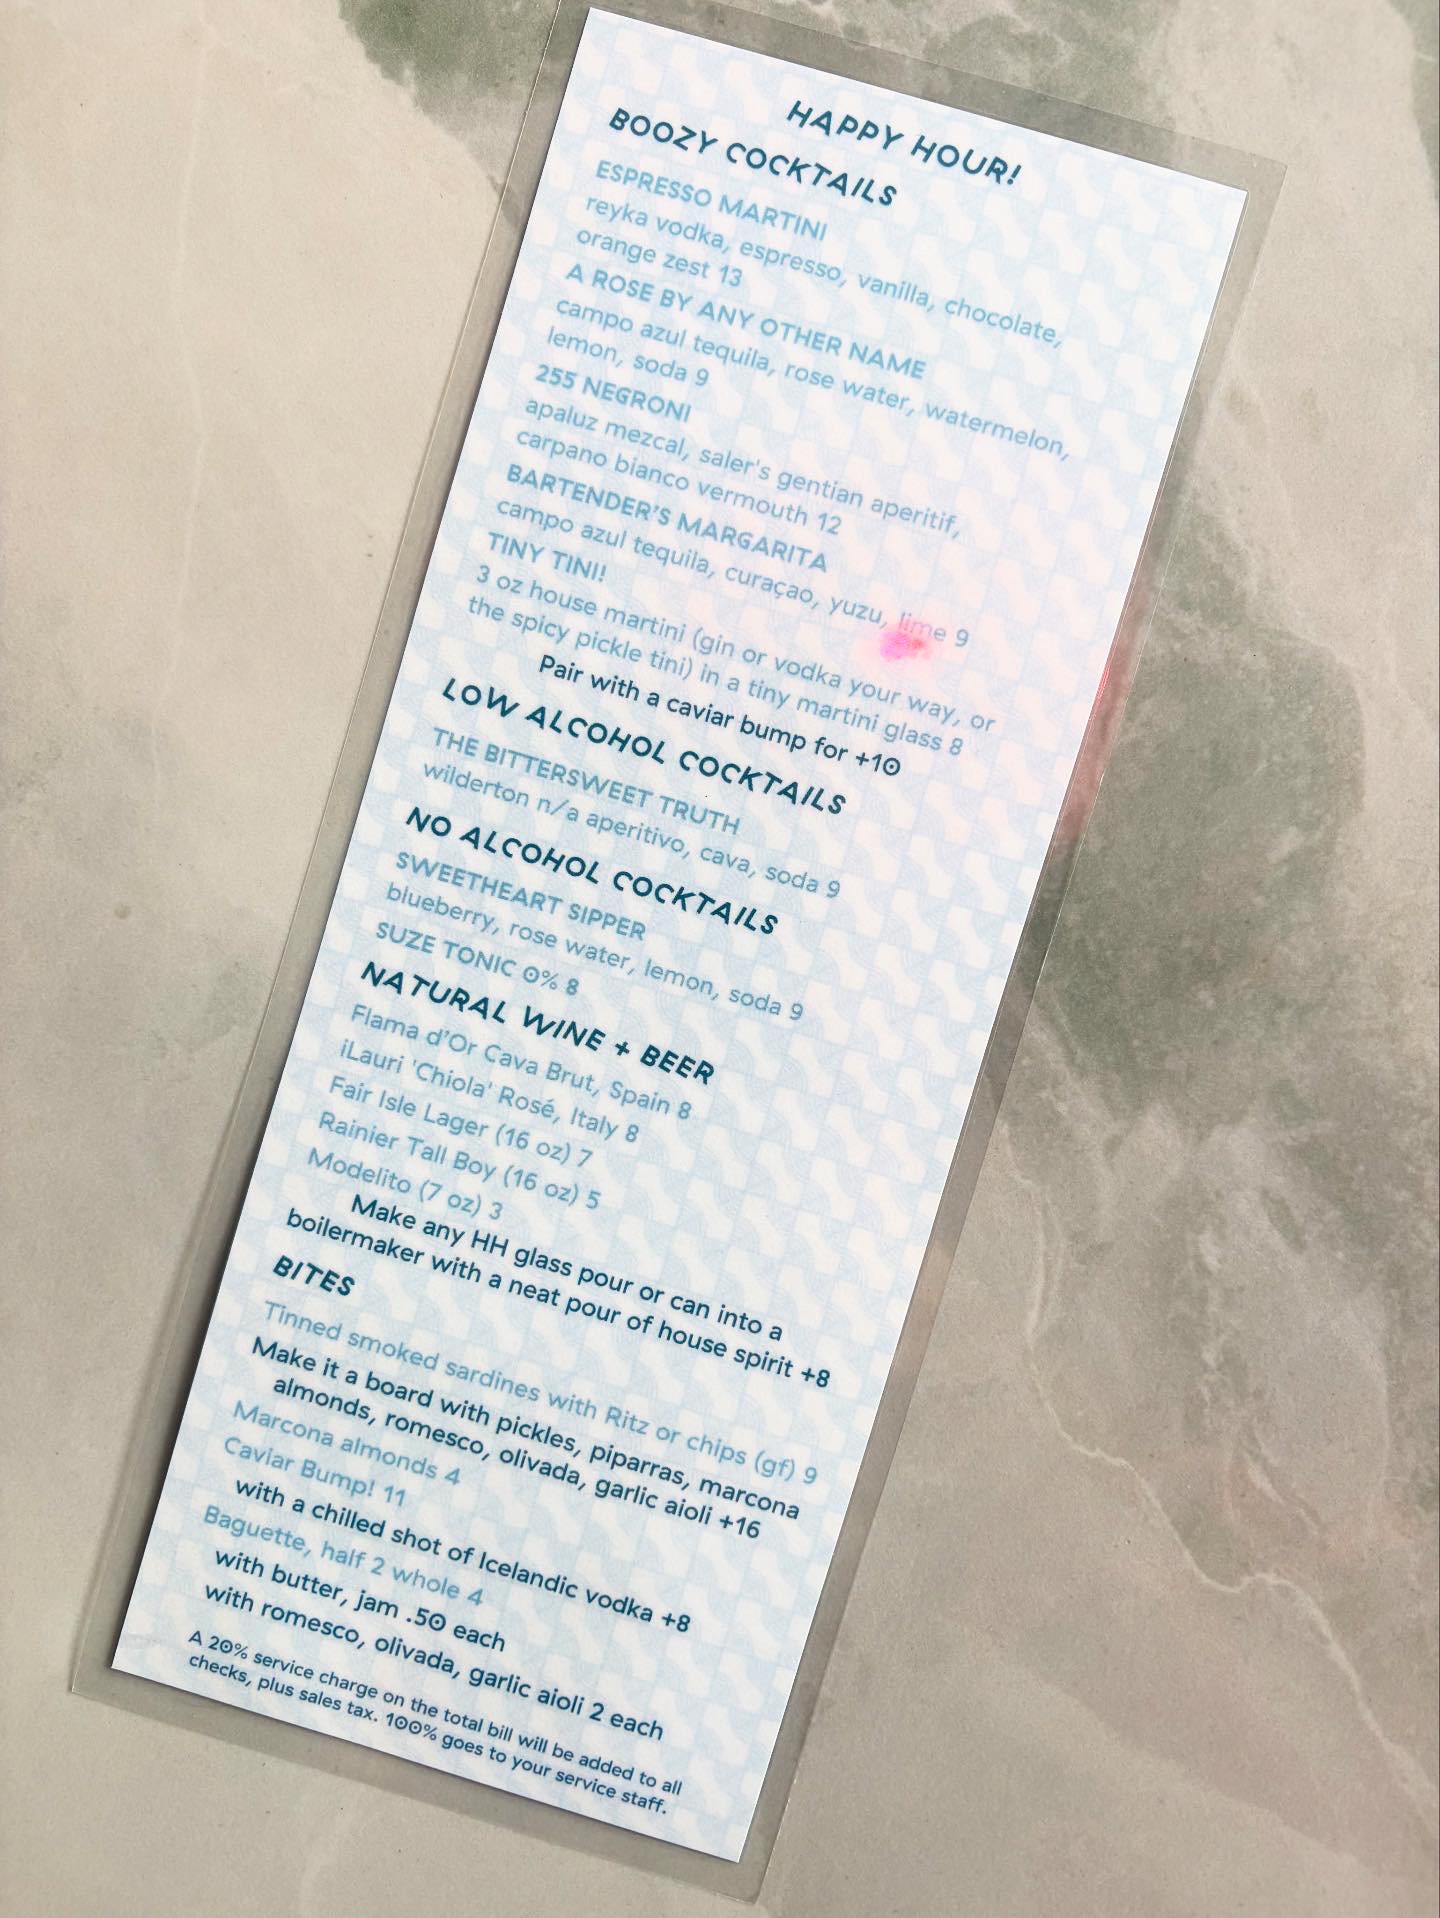 HAPPY HOUR!
BOOZY COCKTAILS
ESPRESSO MARTINI
reyka vodka, espresso, vanilla, chocolate,
orange zest 13
A ROSE BY ANY OTHER NAME
campo azul tequila, rose water, watermelon,
lemon, soda 9
255 NEGRONI
apaluz mezcal, saler's gentian aperitif,
carpano bianco vermouth 12
BARTENDER'S MARGARITA
campo azul tequila, curaçao, yuzu, lime 9
TINY TINI!
3 oz house martini (gin or vodka your way, or
the spicy pickle tini) in a tiny martini glass 8
Pair with a caviar bump for +10
LOW ALCOHOL COCKTAILS
THE BITTERSWEET TRUTH
wilderton n/a aperitivo, cava, soda 9
NO ALCOHOL COCKTAILS
SWEETHEART SIPPER
blueberry, rose water, lemon, soda 9
SUZE TONIC 0% 8
NATURAL WINE + BEER
Flama d'Or Cava Brut, Spain 8
iLauri 'Chiola' Rosé, Italy 8
Fair Isle Lager (16 oz) 7
Rainier Tall Boy (16 oz) 5
Modelito (7 oz) 3
Make any HH glass pour or can into a
boilermaker with a neat pour of house spirit +8
BITES
Tinned smoked sardines with Ritz or chips (gf) 9
Make it a board with pickles, piparras, marcona
almonds, romesco, olivada, garlic aioli +16
Marcona almonds 4
Caviar Bump! 11
with a chilled shot of Icelandic vodka +8
Baguette, half 2 whole 4
with butter, jam .50 each
with romesco, olivada, garlic aioli 2 each
A 20% service charge on the total bill will be added to all
checks, plus sales tax. 100% goes to your service staff.